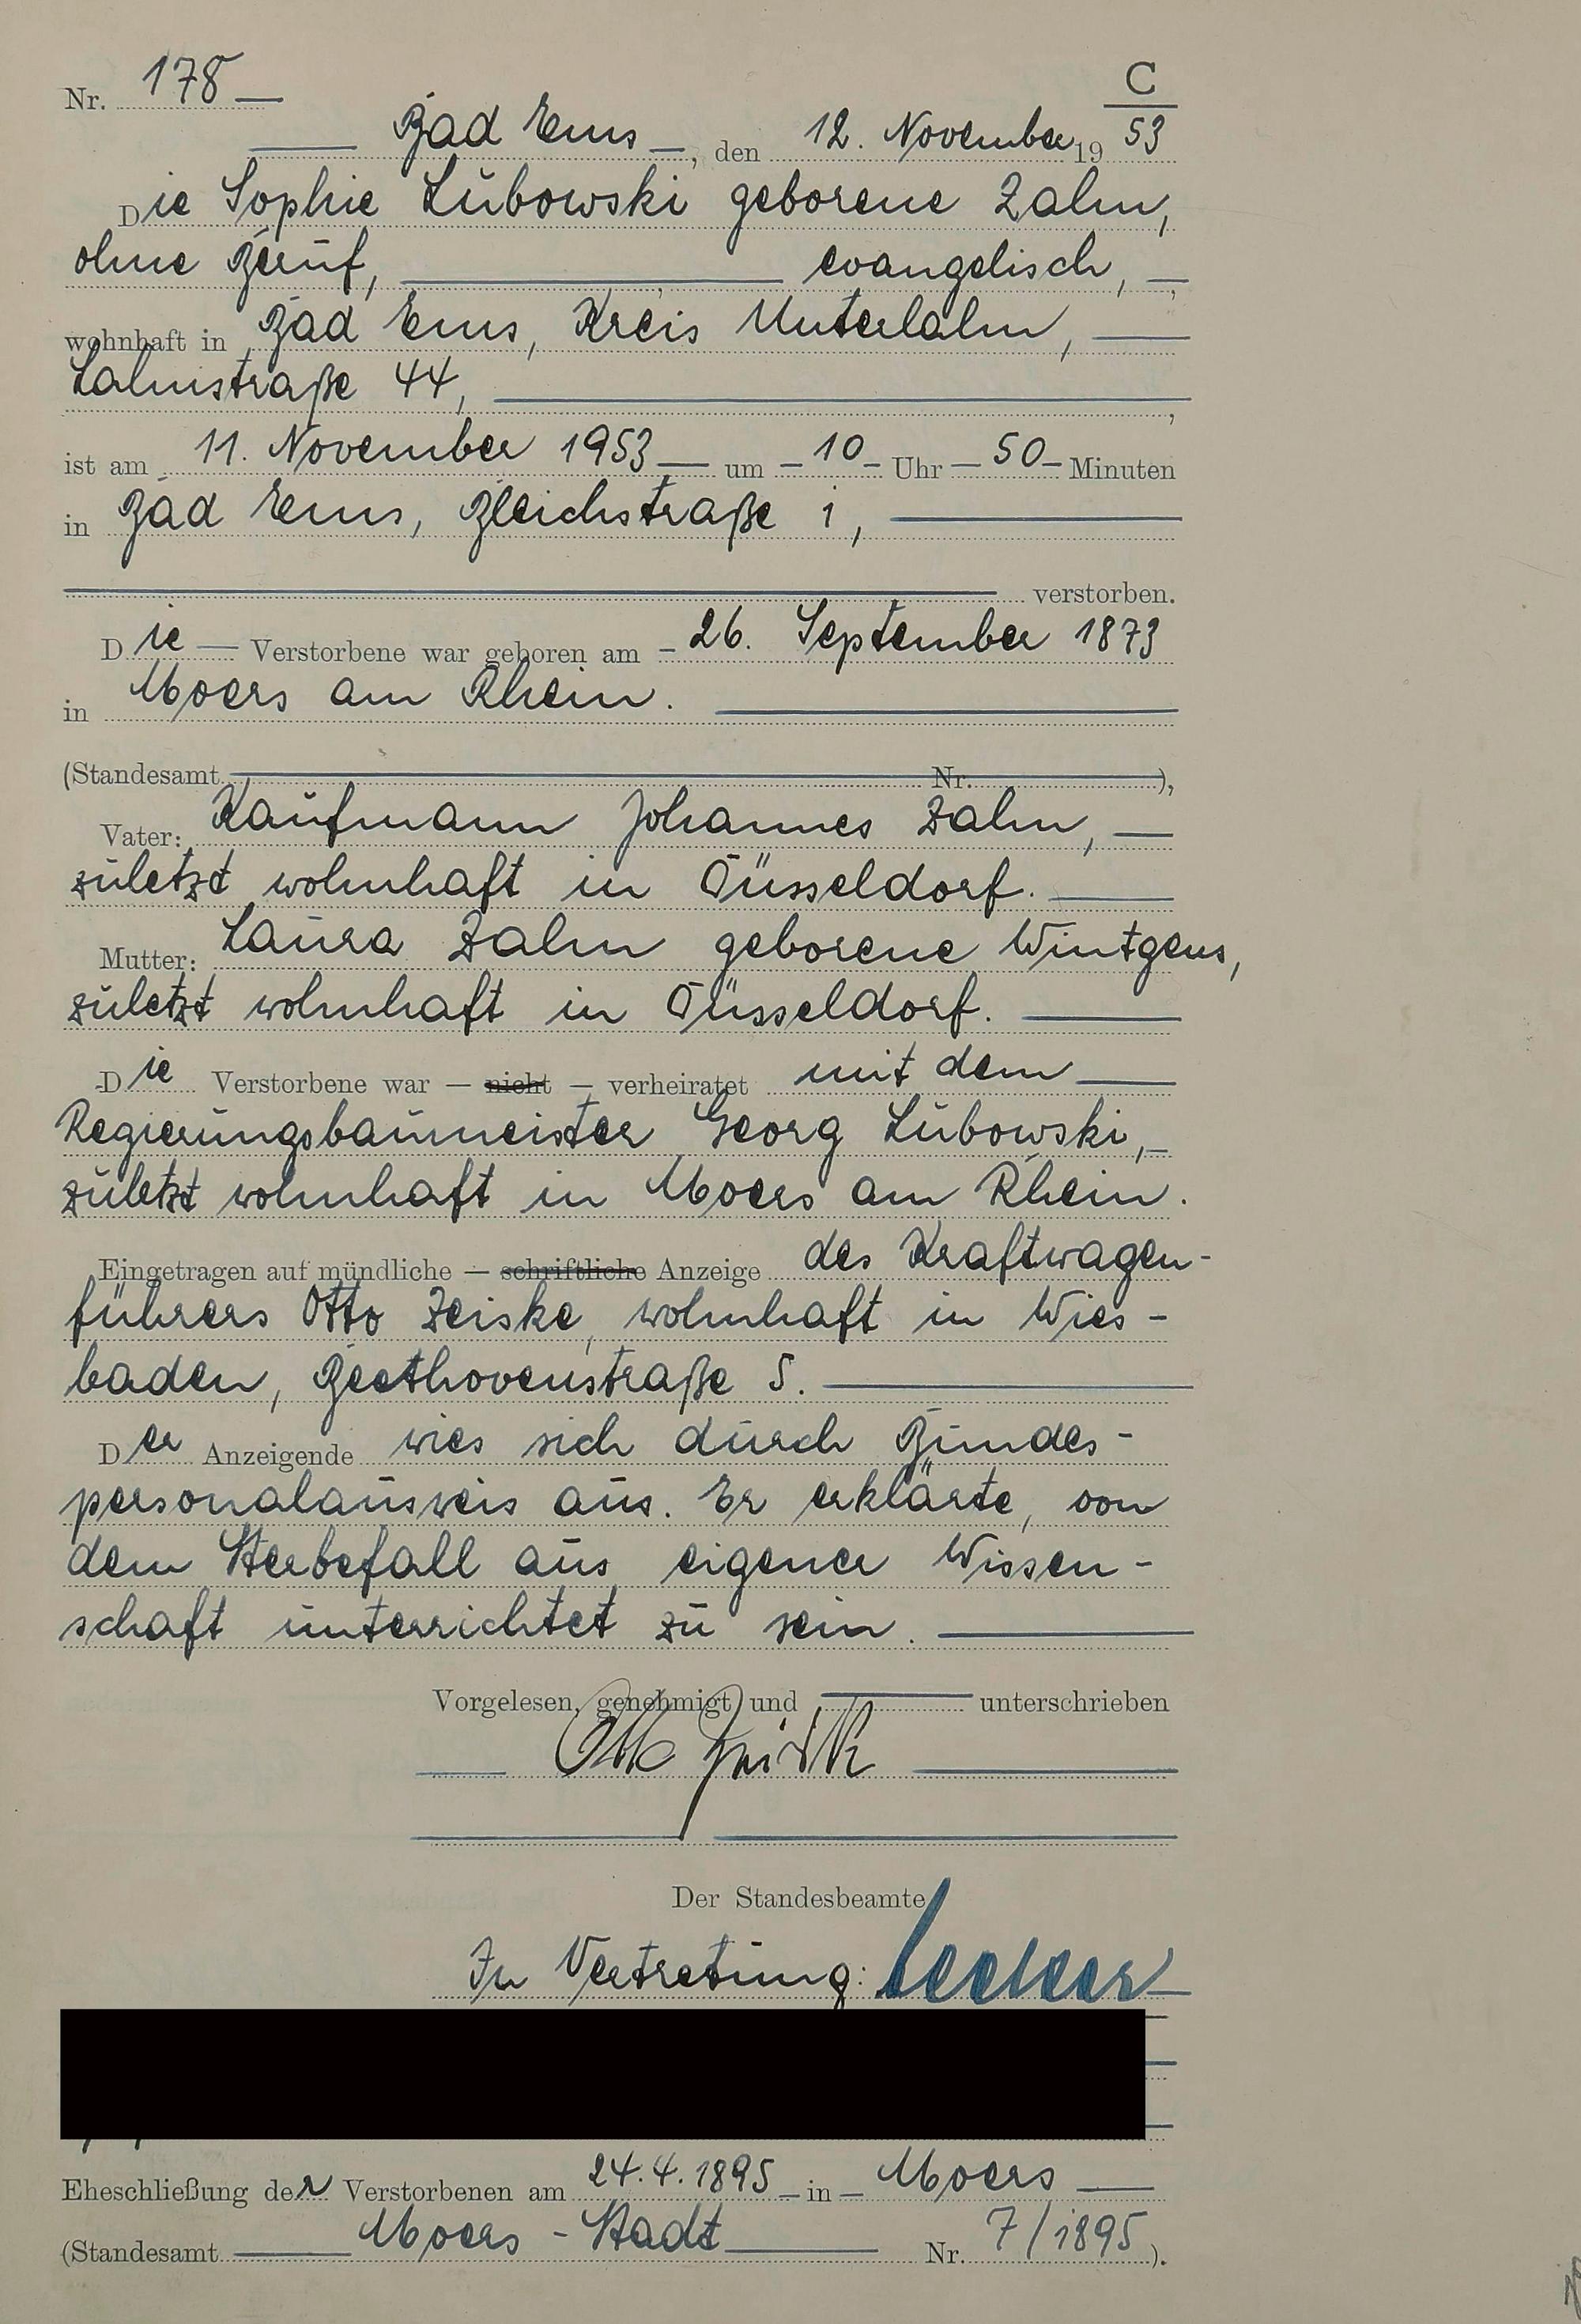 C
Nr. 178
Bad Ems, den 12. November 1953
Die Sophie Lubowski geborene Zahn,
ohne Beruf, evangelisch,
wohnhaft in Bad Ems, Kreis Unterlahn,
Lahnstraße 44,
ist am 11. November 1953 um 10 Uhr 50 Minuten
in Bad Ems, Bleichstraße 1,
verstorben.
Die Verstorbene war geboren am 26. September 1873
in Moers am Rhein.
(Standesamt Nr. ),
Vater: Kaufmann Johannes Zahn,
zuletzt wohnhaft in Düsseldorf.
Mutter: Laura Zahn geborene Wintgens,
zuletzt wohnhaft in Düsseldorf.
Die Verstorbene war — nicht — verheiratet mit dem
Regierungsbaumeister Georg Lubowski,
zuletzt wohnhaft in Moers am Rhein.
Eingetragen auf mündliche — schriftliche Anzeige des Kraftwagen-
führers Otto Zeiske, wohnhaft in Wies-
baden, Beethovenstraße 5.
Der Anzeigende wies sich durch Bundes-
personalausweis aus. Er erklärte, von
dem Sterbefall aus eigener Wissen-
schaft unterrichtet zu sein.
Vorgelesen, genehmigt und unterschrieben
Otto Zeiske
Der Standesbeamte
In Vertretung:
Eheschließung der Verstorbenen am 24.4.1895 in Moers
(Standesamt Moers-Stadt Nr. 7/1895).